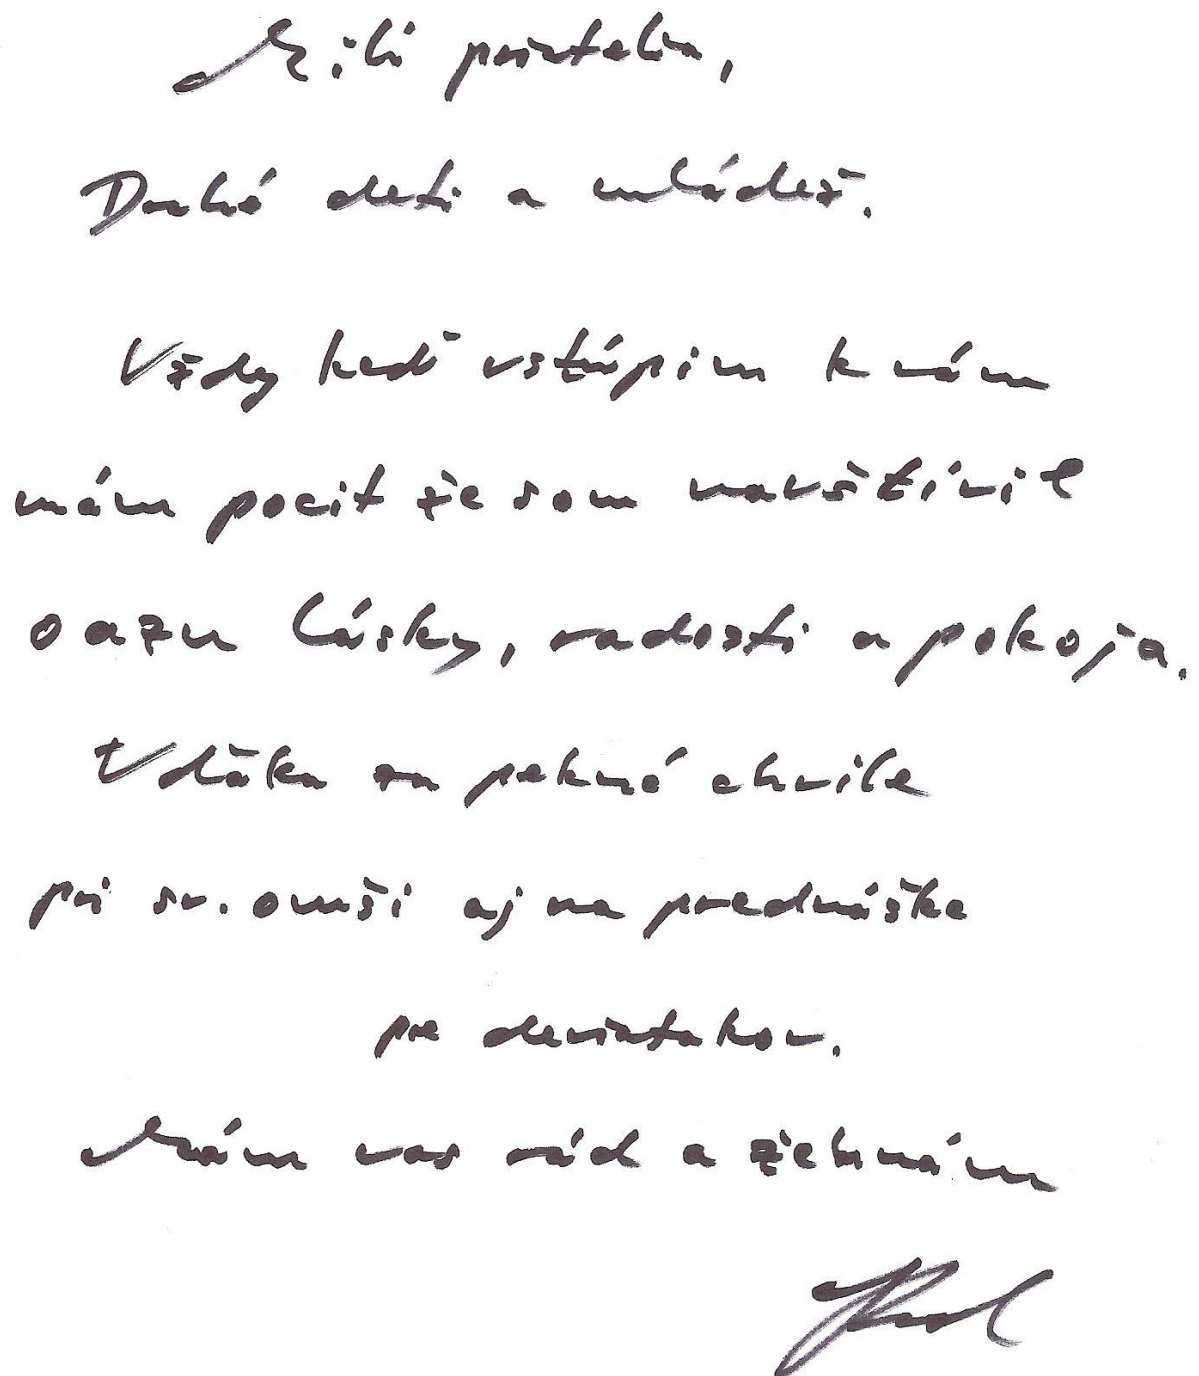 Milí priatelia,
Drahé deti a mládež.
Vždy keď vstúpim k vám
mám pocit že som navštívil
oazu lásky, radosti a pokoja.
Vďaka za pekné chvíle
pri sv. omši aj na prednáške
pre deviatakov.
Mám vas rád a žehnám